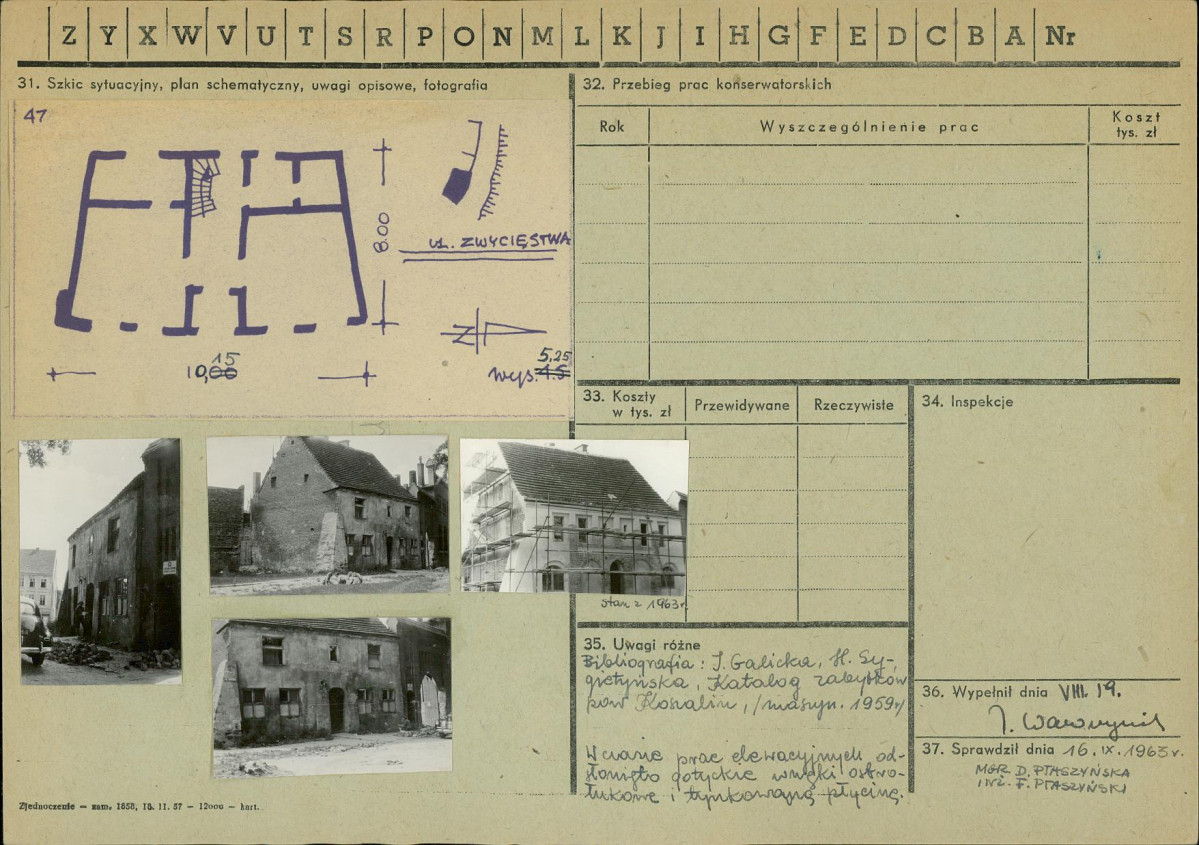 Z Y X W V U T S R P O N M L K J I H G F E D C B A Nr
31. Szkic sytuacyjny, plan schematyczny, uwagi opisowe, fotografia
47
8.00
UL. ZWYCIĘSTWA
N
15
10,00
5,25
wys. 4.5
stan z 1963r.
32. Przebieg prac konserwatorskich
Rok
Wyszczególnienie prac
Koszt
tys. zł
33. Koszty
w tys. zł
Przewidywane
Rzeczywiste
34. Inspekcje
35. Uwagi różne
Bibliografia: I. Galicka, H. Sy-
gietyńska, Katalog zabytków
pow Koszalin, /maszyn. 1959r/
W czasie prac elewacyjnych od-
słonięto gotyckie wnęki ostro-
łukowe i tynkowaną płycinę.
36. Wypełnił dnia VIII.19.
37. Sprawdził dnia 16.IX.1963r.
MGR D. PTASZYŃSKA
INŻ. F. PTASZYŃSKI
Zjednoczenie — zam. 1658, 16. 11. 57 — 12000 — kart.